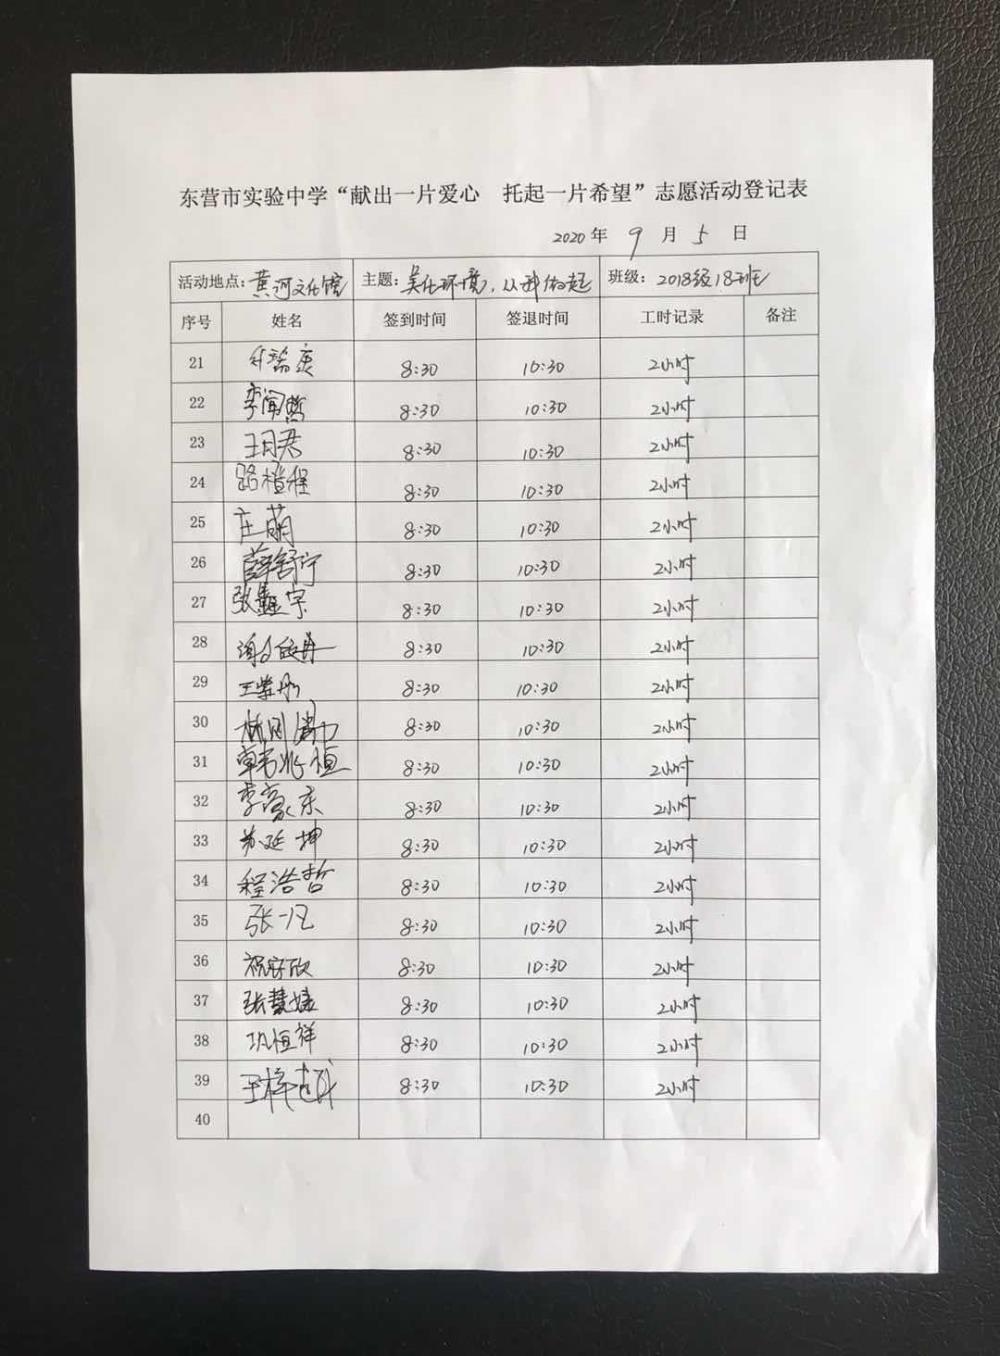 东营市实验中学“献出一片爱心 托起一片希望”志愿活动登记表
2020 年 9 月 5 日
活动地点：黄河文化馆 主题：美化环境，从我做起 班级：2018级18班
序号 姓名 签到时间 签退时间 工时记录 备注
21 8:30 10:30 2小时
22 李闻哲 8:30 10:30 2小时
23 王月君 8:30 10:30 2小时
24 路橙程 8:30 10:30 2小时
25 庄萌 8:30 10:30 2小时
26 薛舒宁 8:30 10:30 2小时
27 张鑫宇 8:30 10:30 2小时
28 8:30 10:30 2小时
29 王紫彤 8:30 10:30 2小时
30 8:30 10:30 2小时
31 韩兆恒 8:30 10:30 2小时
32 李豪东 8:30 10:30 2小时
33 苏延坤 8:30 10:30 2小时
34 程浩哲 8:30 10:30 2小时
35 张一凡 8:30 10:30 2小时
36 祝安欣 8:30 10:30 2小时
37 张慧婕 8:30 10:30 2小时
38 巩恒祥 8:30 10:30 2小时
39 王梓 8:30 10:30 2小时
40